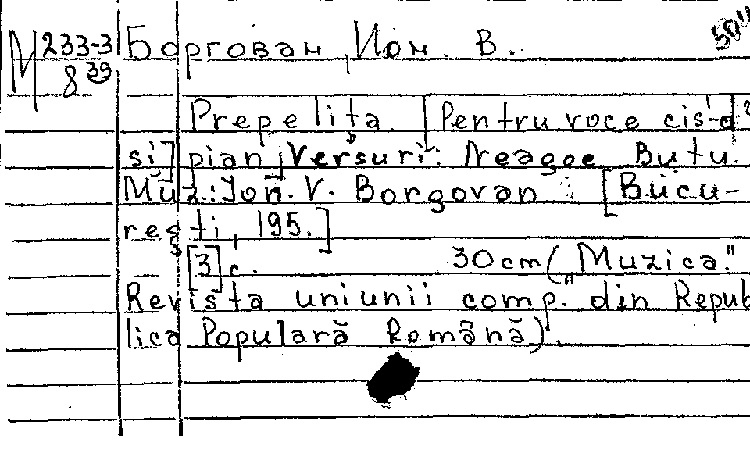 М 233-3 Боргован, Ион. В..
8 39
Prepelița. [Pentru voce
și] pian, Versuri: Neagoe Butu.
Muz.: Ion. V. Borgovan [Bucu-
rești, 195.]
[3] c. 30 cm ("Muzica."
Revista uniunii comp. din Repub
lica Populară Română).